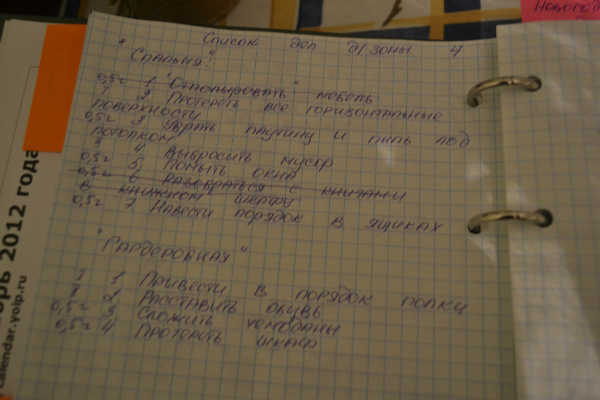 Новогод
Список дел д/зоны 4
"Спальня."
0,5г 1 "Отполировать" мебель
1 2 Протереть все горизонтальные
поверхности
0,5г 3 Убрать паутину и пыль под
потолком
3 4 Выбросить мусор
0,5г 5 Помыть окна
0,5г 6 Разобраться с книгами
в книжном шкафу
0,5г 7 Навести порядок в ящиках
"Гардеробная"
1 1 Привести в порядок полки
1 2 Расставить обувь
0,5г 3 Сложить чемоданы
0,5г 4 Протереть шкаф
рь 2012 года
calendar.yoip.ru